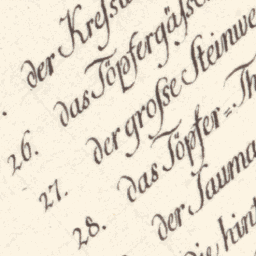 der Kreſsu
26. das Töpfergäſsc
27. der groſse Steinwe
28. das Töpfer=Th
der Sauma
die hint